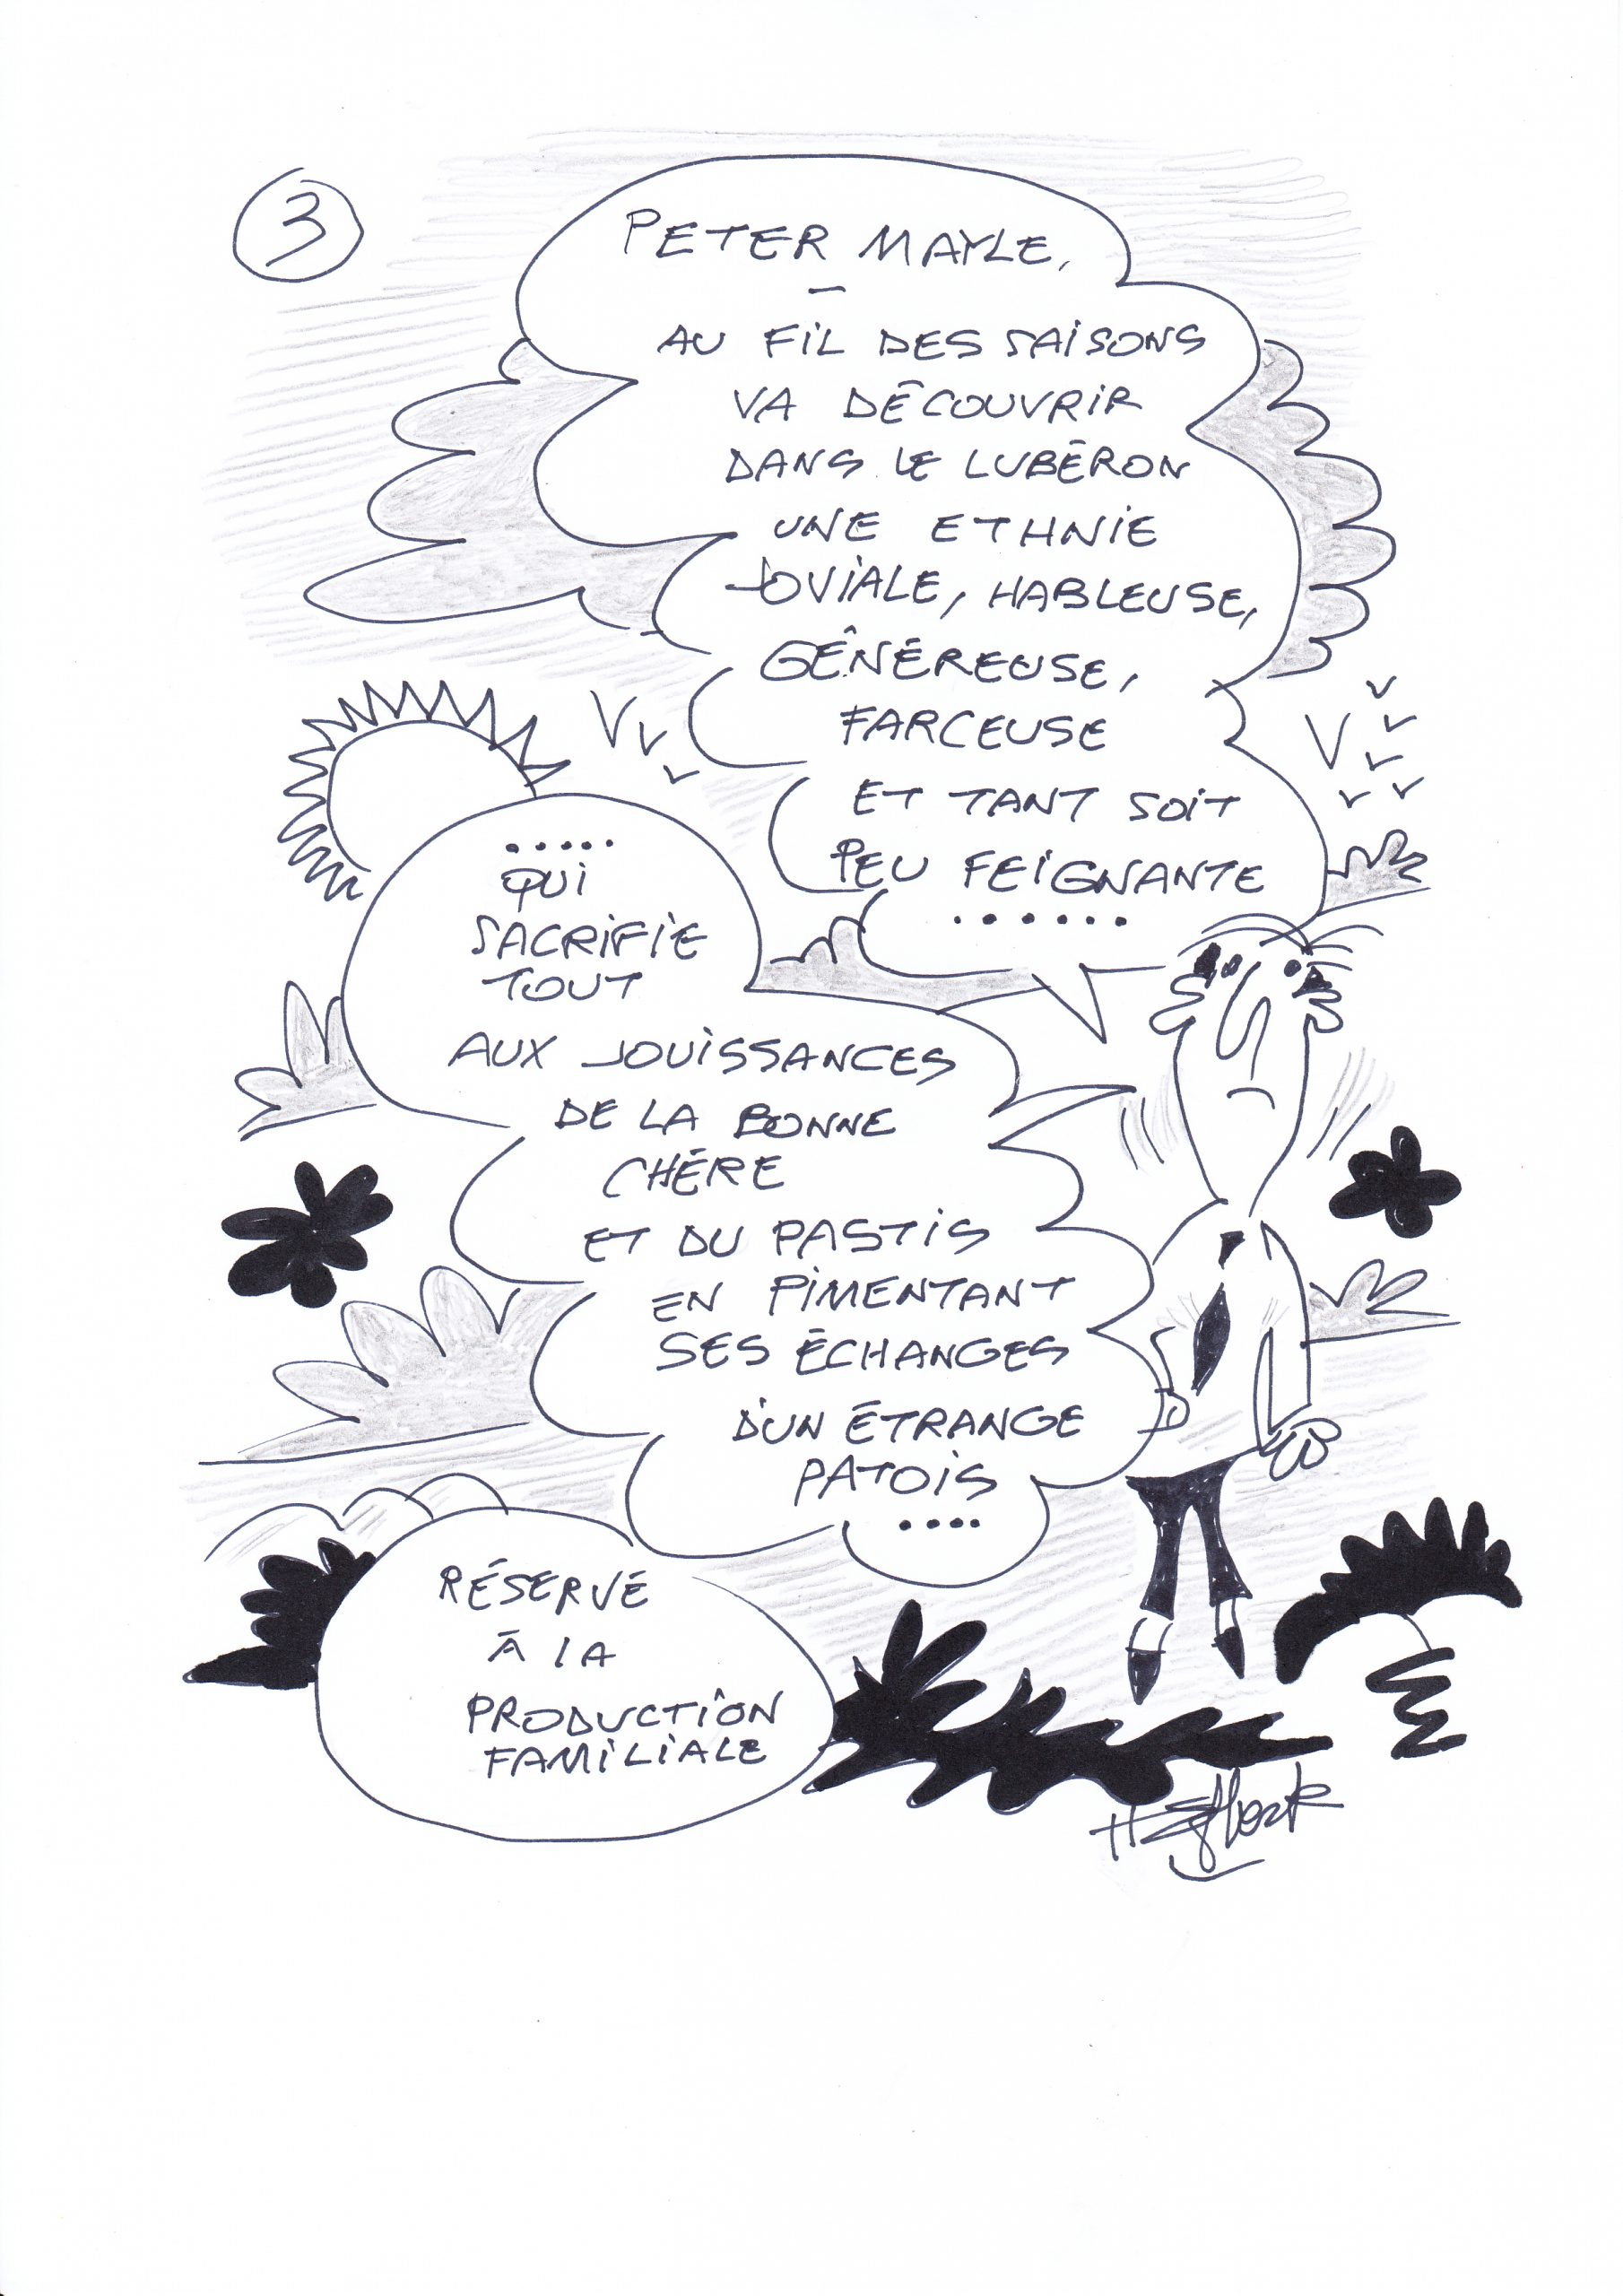 3
PETER MAYLE,
—
AU FIL DES SAISONS
VA DÉCOUVRIR
DANS LE LUBÉRON
UNE ETHNIE
JOVIALE, HABLEUSE,
GÉNÉREUSE,
FARCEUSE
ET TANT SOIT
PEU FEIGNANTE
......
.....
QUI
SACRIFIE
TOUT
AUX JOUISSANCES
DE LA BONNE
CHÈRE
ET DU PASTIS
EN PIMENTANT
SES ÉCHANGES
D'UN ÉTRANGE
PATOIS
....
RÉSERVÉ
À LA
PRODUCTION
FAMILIALE